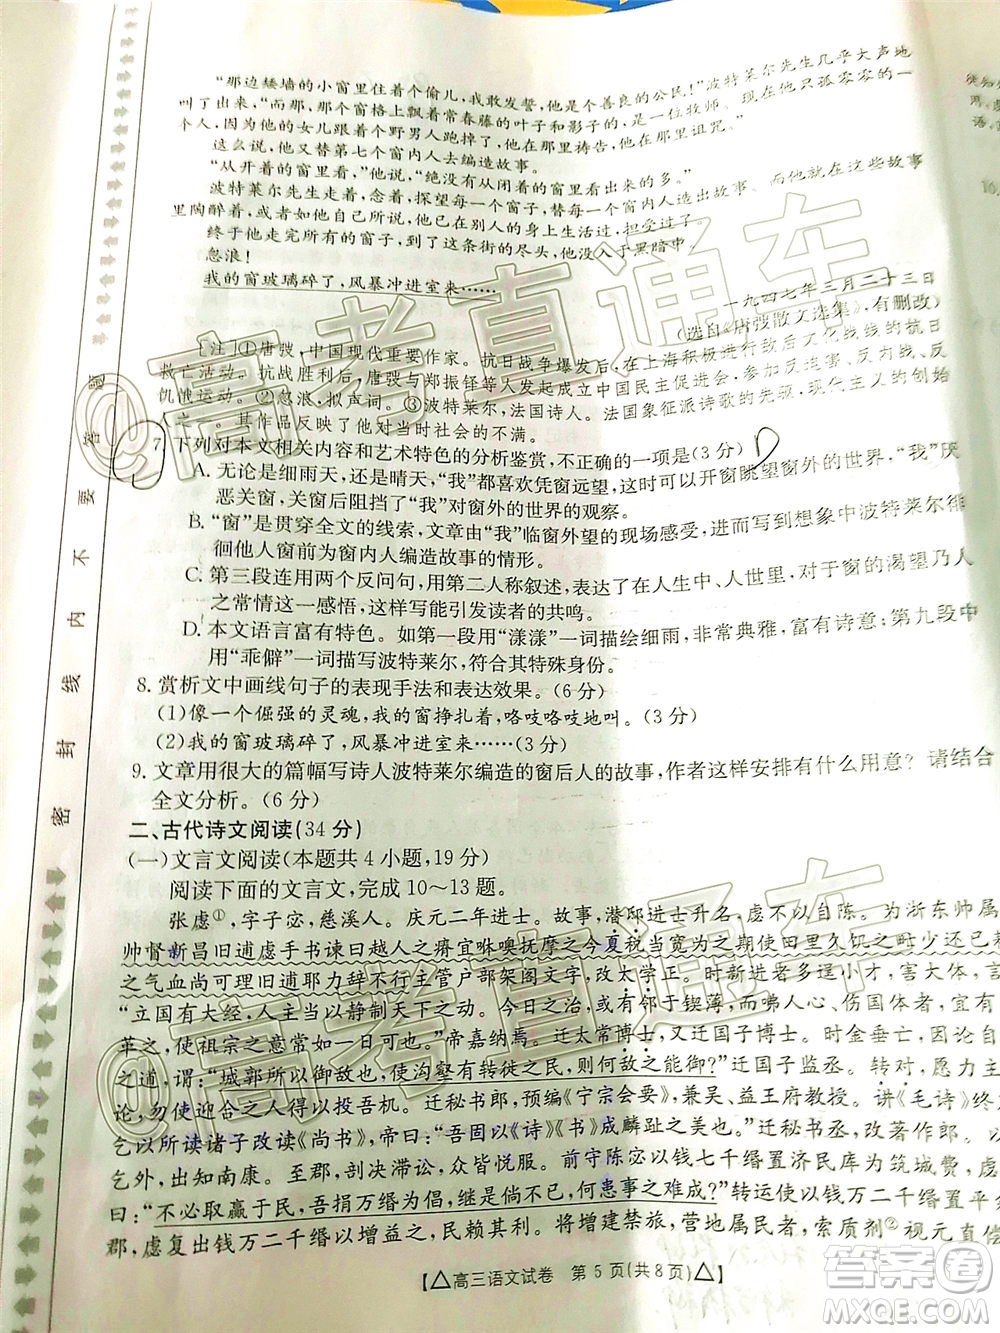 “那边矮墙的小窗里住着个偷儿，我敢发誓，他是个善良的公民！”波特莱尔先生几乎大声地
叫了出来，“而那，那个窗格上飘着常春藤的叶子和影子的，是一位牧师。现在他只孤零零的
个，他的女儿跟着个野男人跑掉了，他在那里祷告，他在那里诅咒。”
这么说，他又替第七个窗内人去编造故事。
“从开着的窗里看，”他说，“绝没有从关着的窗里看出来的多。”
波特莱尔先生走着，念着，探望每一个窗子，替每一个窗内人造些故事，而他就在这些故事
里陶醉着，似乎他自己所创造的人的身上生活过，担受过了。
终于他走完所有的窗子，到了这条街的尽头，他没入于黑暗中。
忽浪！
我的窗玻璃碎了，风暴冲进室来……
一九四七年三月二十三日
（选自《唐弢散文选集》，有删改）
［注］①唐弢，中国现代重要作家。抗日战争爆发后，在上海积极进行敌后文化战线的抗日
救亡活动。抗战胜利后，唐弢与郑振铎等人发起成立中国民主促进会，参加反内战、反迫害、反
饥饿运动。②忽浪，拟声词。③波特莱尔，法国诗人。法国象征派诗歌的先驱，现代派的奠基人
之一。其作品反映了他对当时社会的不满。
7. 下列对本文相关内容和艺术特色的分析鉴赏，不正确的一项是（3 分）
A. 无论是细雨天，还是晴天，“我”都喜欢凭窗远望，这样可以打开窗眺望窗外的世界，“我”厌
恶关窗，关窗后阻挡了“我”对窗外的世界的观察。
B. “窗”是贯穿全文的线索，文章由“我”临窗外望的现场感受，一直写到想象中波特莱尔徘
徊他人窗前为窗内人编造故事的情形。
C. 第三段连用两个反问句，用第二人称叙述，表达了在人生中、人世里，对于窗的渴望乃人
之常情这一感悟，这样写容易引发读者的共鸣。
D. 本文语言富有特色。如第一段用“漾漾”一词描绘细雨，非常典雅，富有诗意；第九段中
用“乖僻”一词描写波特莱尔，符合其特殊身份。
8. 赏析文中画线句子的表现手法和表达效果。（6 分）
（1）像一个倔强的灵魂，我的窗挣扎着，咯吱咯吱地叫。（3 分）
（2）我的窗玻璃碎了，风暴冲进室来……（3 分）
9. 文章用很大的篇幅写诗人波特莱尔编造的窗后人的故事，作者这样安排有什么用意？请结合
全文分析。（6 分）
二、古代诗文阅读（34 分）
（一）文言文阅读（本题共 4 小题，19 分）
阅读下面的文言文，完成 10～13 题。
张虙①，字子宓，慈溪人。庆元二年进士。故事，潜邸进士升名，虙不自陈。为浙东帅属
帅督新昌旧逋虙手书谏曰越人之瘠宜咻噢抚摩之今夏税当宽为之期使田里久饥之时少延
之气血尚可理旧逋耶力辞不行主管户部架阁文字，改太学正。时新进者多逞小才，害大体，
“立国有大经，人主当以静制天下之动。今日之治，或有亟于锲薄，而咈人心、伤国体者，宜有
革之，使祖宗之意常如一日可也。”帝嘉纳焉。迁太常博士，又迁国子博士。时金垂亡，因论自
之道，谓：“城郭所以御敌也，使沟壑有转徙之民，则何敌之能御？”迁国子监丞。转对，愿力主
论，勿使迎合之人得以投吾机。迁秘书郎，预编《宁宗会要》，兼吴、益王府教授。讲《毛诗》终
乞以所读诸子改读《尚书》，帝曰：“吾固以《诗》《书》成麟趾之美也。”迁秘书丞，
乞外，出知南康。至郡，剖决滞讼，众皆悦服。前守陈宓以钱七千缗置济民库为筑城费，虙
曰：“不必取赢于民，吾捐万缗为倡，继是倘不已，何患事之难成？”转运使以钱万二千缗置平
郡，虙复出钱万二千缗以增益之，民赖其利。将增建禁旅，营地属民业，索质剂②视元直偿
△高三语文试卷 第 5 页（共 8 页）△
密 封 线 内 不 要 答 题
@高考直通车
@高考直通车
答案圈
MXQE.COM